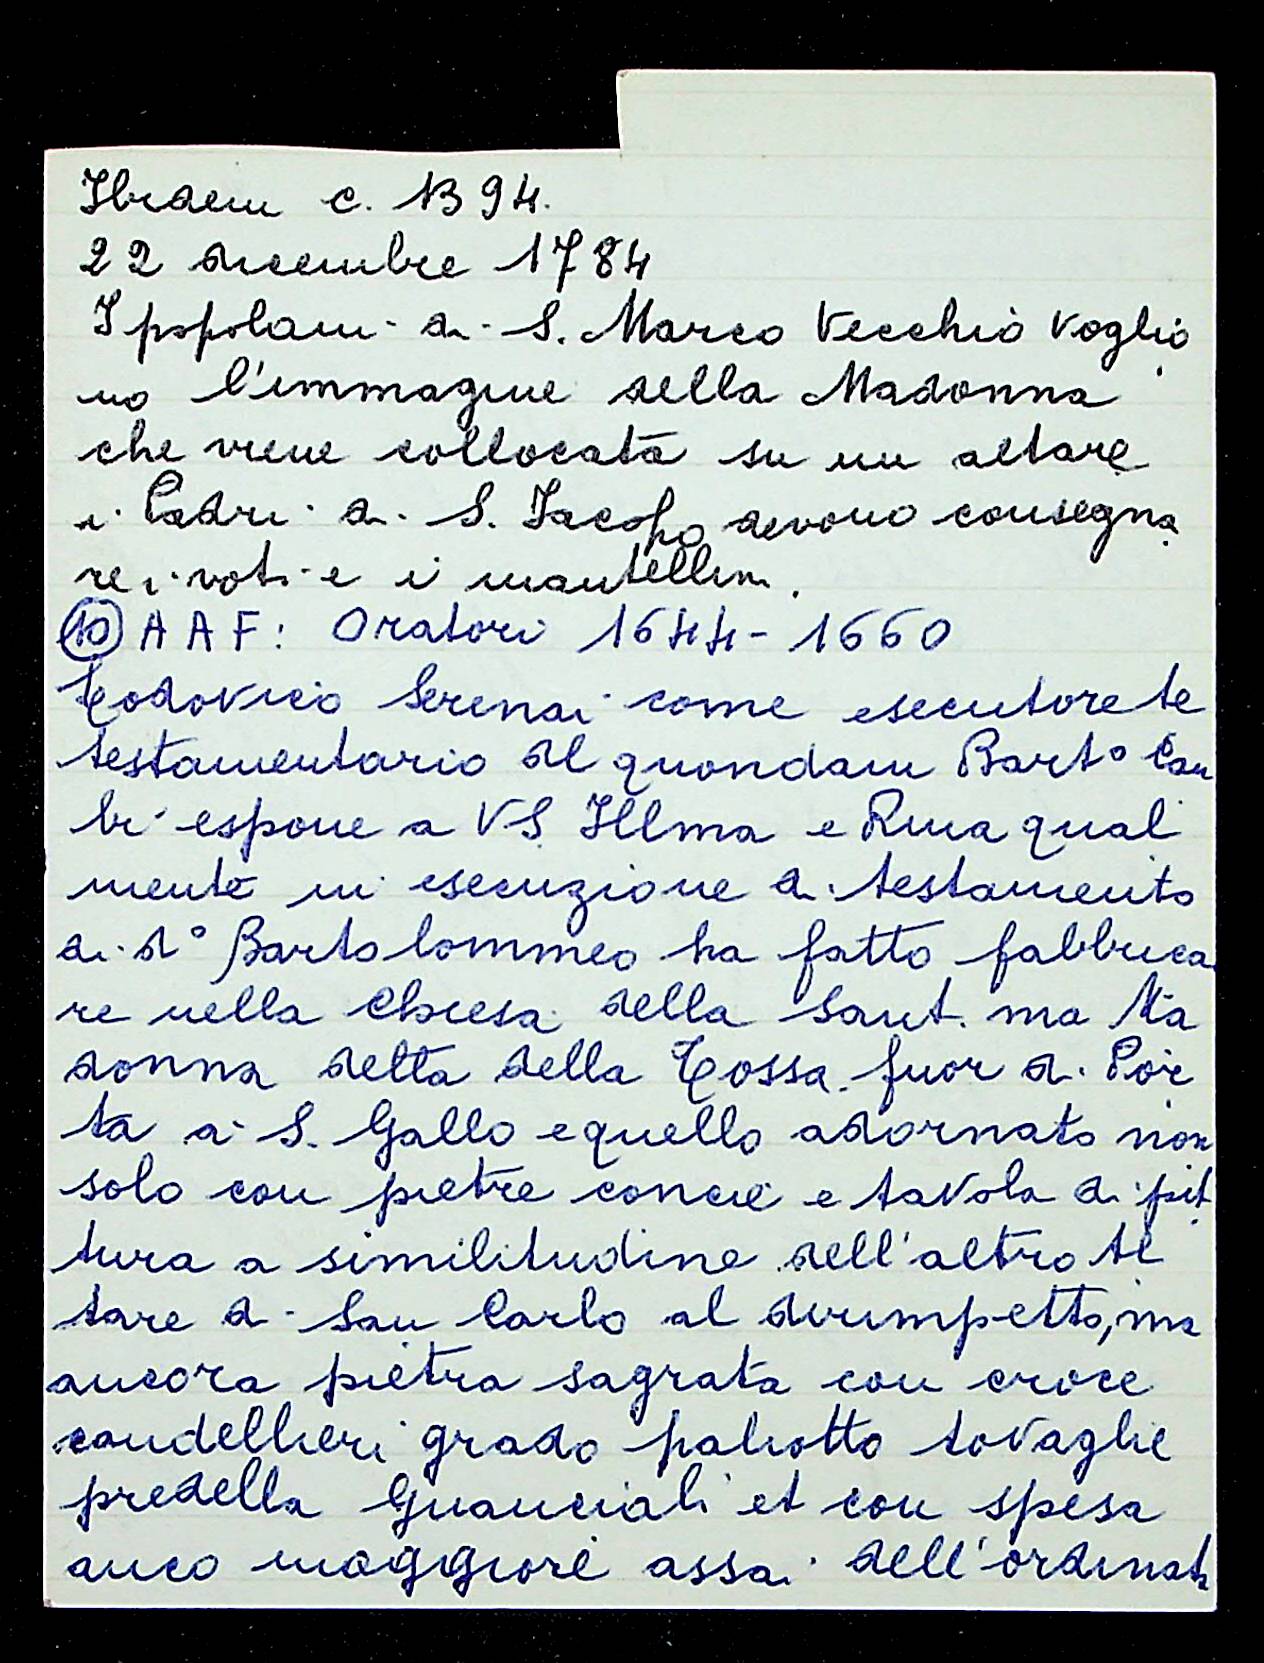 Ibidem c. 1394.
22 dicembre 1784
I popolani di S. Marco Vecchio voglio
no l'immagine della Madonna
che viene collocata su un altare
i Padri di S. Jacopo devono consegna
re i voti e i mantellini.
(10) A A F: Oratori 1644-1660
Lodovico Serenai come esecutore te
testamentario del quondam Bart° Cam
bi espone a VS Illma e Rma qual
mente in esecuzione di testamento
di d° Bartolommeo ha fatto fabbrica
re nella Chiesa della Sant.ma Ma
donna detta della Tossa fuor di Por
ta a S. Gallo e quello adornato non
solo con pietre concie e tavola di pit
tura a similitudine dell'altro Al
tare di San Carlo al dirimpetto, ma
ancora pietra sagrata con croce
candellieri grado paliotto tovaglie
predella Guanciali et con spesa
anco maggiore assai dell'ordinat